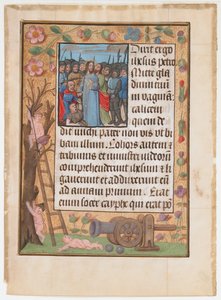 Dixit ergo
ihesus petro
Mitte gla
dium tuum
in vaginā
calicem
quem de
dit michi pater non vis vt bi
bam illum. Cohors autem et
tribunus et ministri iudeorū
comprehenderunt ihesum & li
gauerunt et adduxerunt eum
ad annam primum. Erat
enim socer cayphe qui erat pō